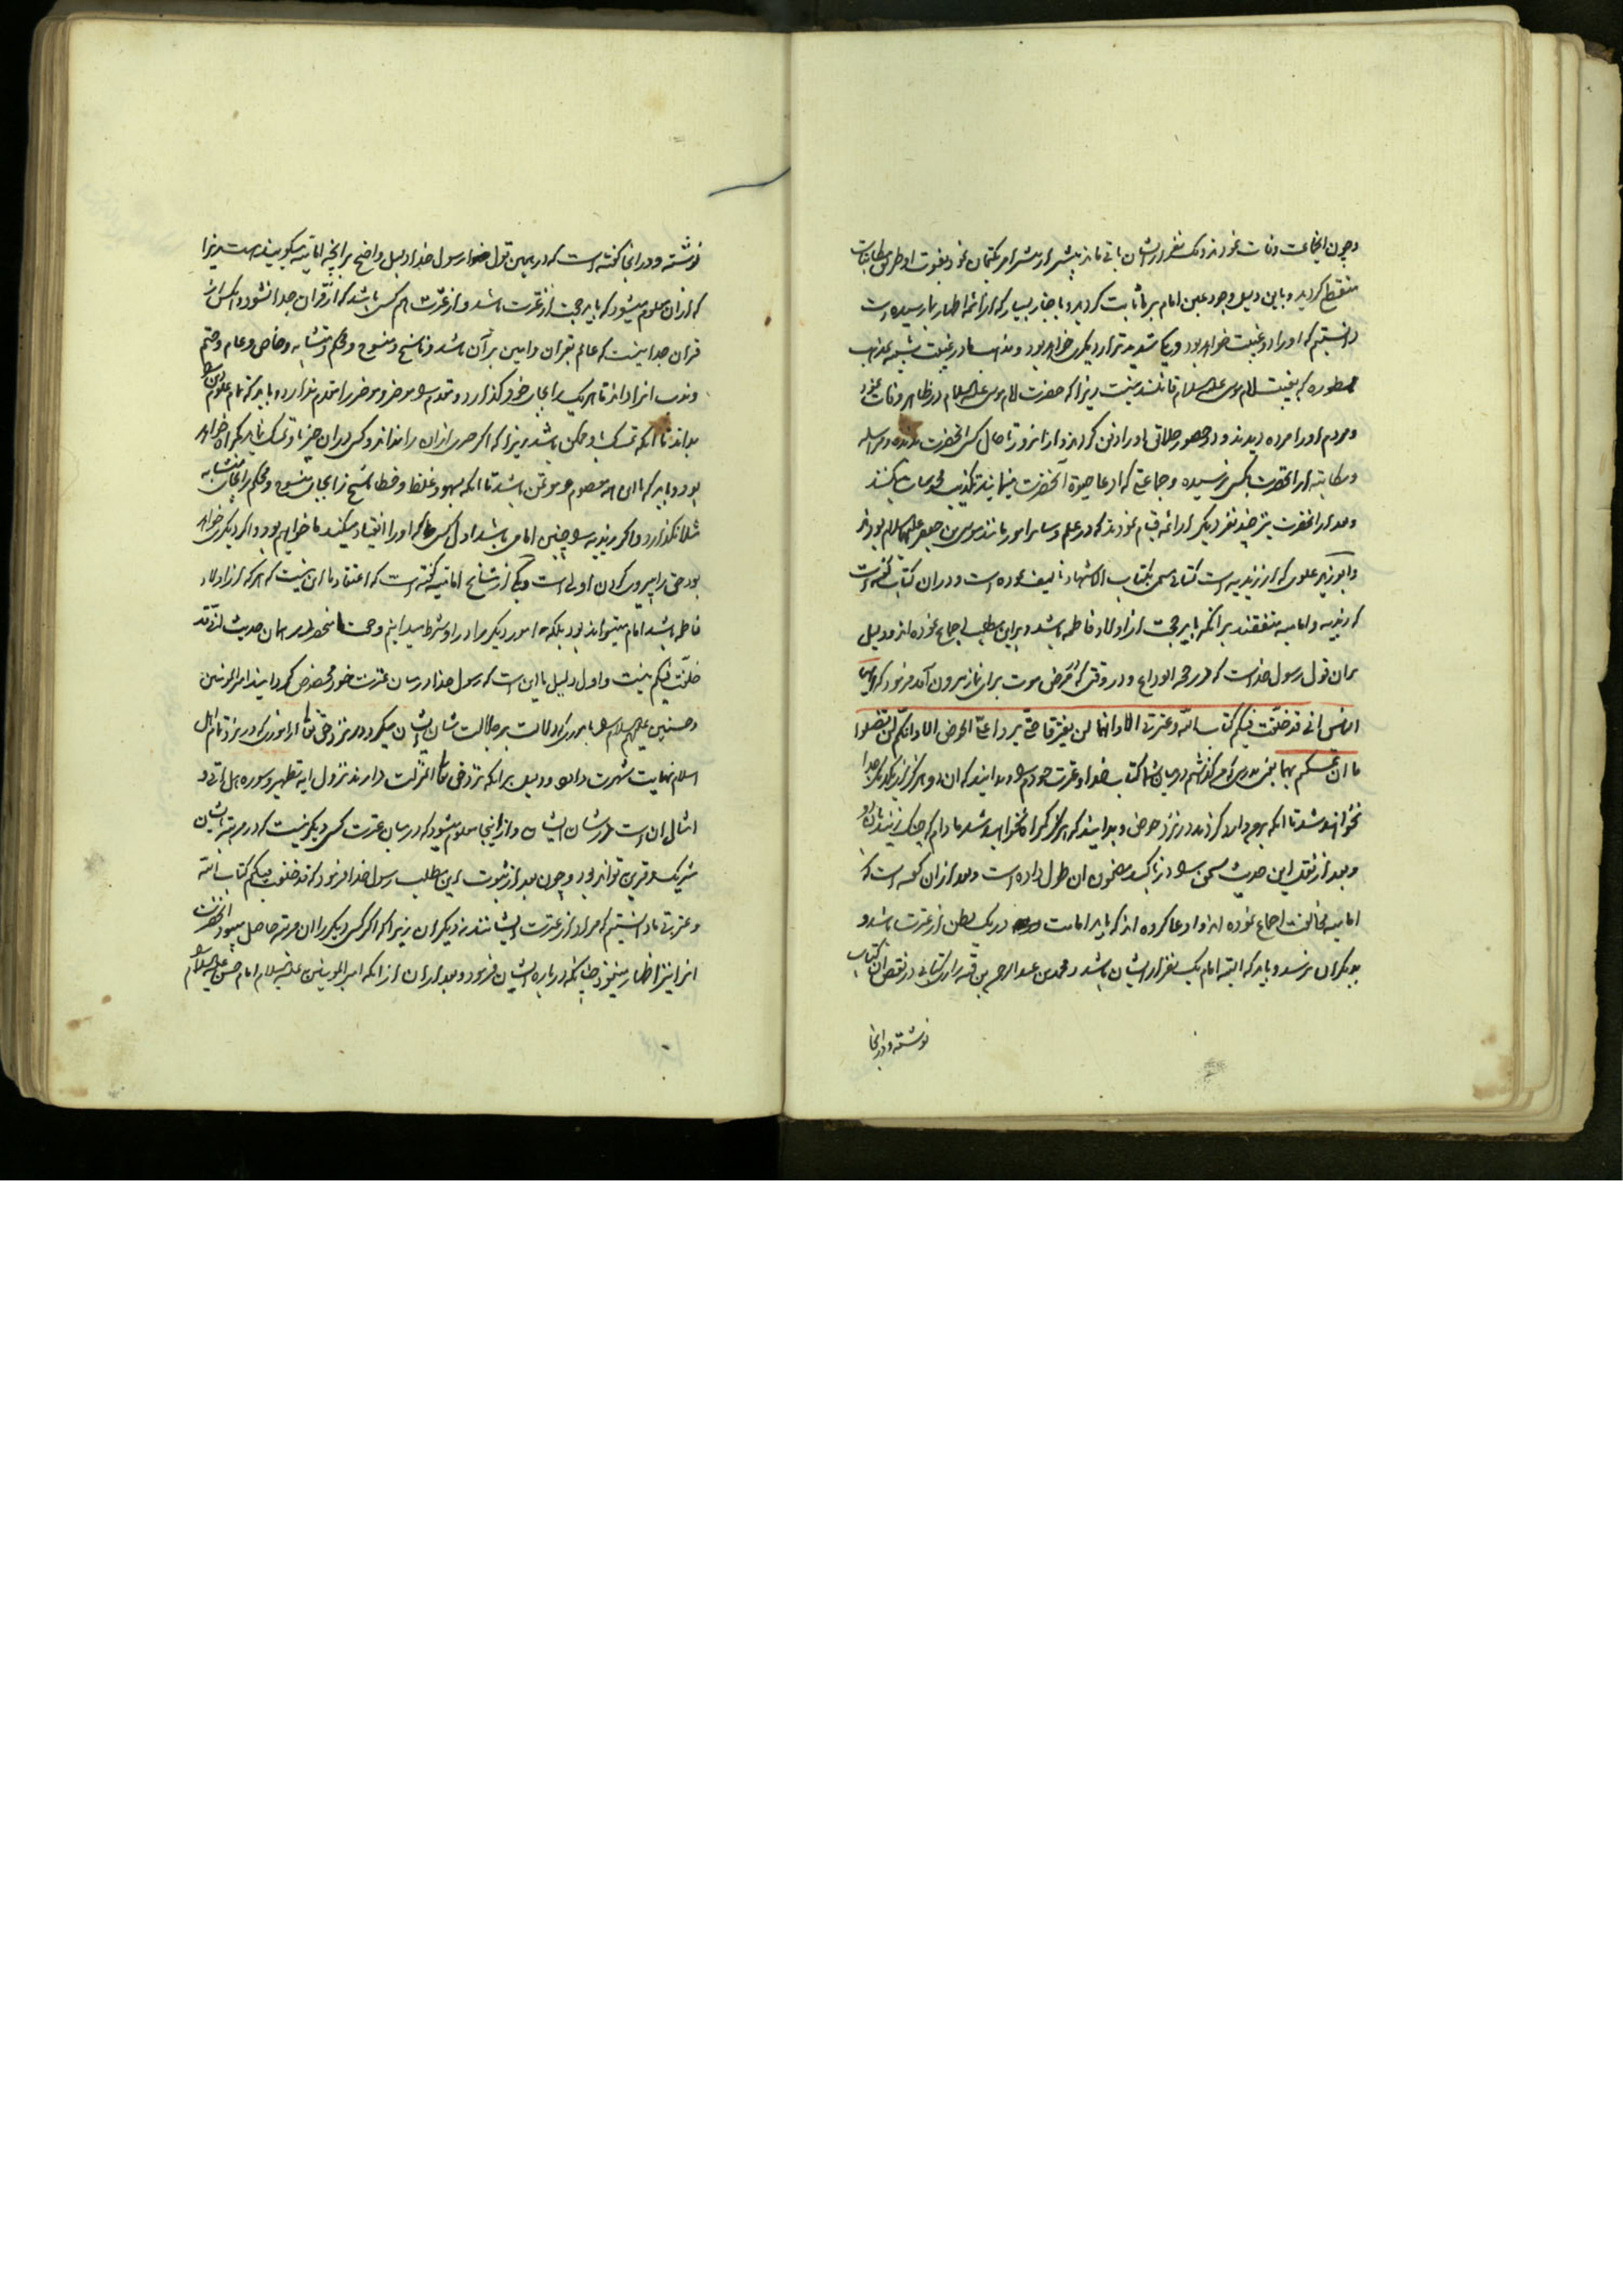 وچون انجماعت وفات نمودند ویک نفر از ایشان باقی ماند پیشتر از پیشتر امر بکتمان نمود بفوت او طریق مکاتبات
منقطع گردید و باین دلیل وجود عین امام بر ما ثابت گردید و باخبار بسیار که از ائمه اطهار بما رسیده است
دانستیم که او را دو غیبت خواهد بود و یکی شدیدتر از دیگری خواهد بود و مذهب ما در غیبت شبیه بمذهب
ممطوره که بغیبت امام موسی علیه السلام قائلند نیست زیرا که حضرت امام موسی علیه السلام در ظاهر وفات نمود
و مردم او را مرده دیدند و در حضور خلائق او را دفن کردند و از انروز تا حال کسی انحضرت را ندیده و مراسله
و مکاتبه از انحضرت بکسی نرسیده و جماعتی که ادعا حیوة آنحضرت مینمایند تکذیب محسوسات میکنند
و بعد از انحضرت نیز چند نفر دیگر از ائمه قیام نمودند که در علم و سایر امور مانند موسی بن جعفر علیهما السلام بودند
و ابو زید علوی که از زیدیه است کتابی مسمی بکتاب الاشهاد تالیف نموده است و در ان کتاب گفته است
که زیدیه و امامیه متفقند بر انکه باید حجت از اولاد فاطمه باشد و بر این مطلب اجماع نموده اند و دلیل
بر ان قول رسول خداست که در حجة الوداع و در وقتی که در مرض موت برای نماز بیرون آمد فرمود که ایها
الناس انی قد خلّفت فیکم کتاب اللّه و عترتی الا و انهما لن یفترقا حتّی یردا علیّ الحوض الا و انکم لن تضلوا
ما ان تمسکتم بهما یعنی بدرستی که من گذاشتم در میان شما کتاب خدا و عترت خودم را و بدانید که ان دو هرگز از یکدیگر جدا
نخواهند شد تا انکه بر من وارد گردند در نزد حوض و بدانید که هرگز گمراه نخواهید شد مادام که چنگ زنید بان دو
و بعد از نقل این حدیث سخن را در تاکید مضمون ان طول داده است و بعد از ان گفته است که
امامیه مخالفت اجماع نموده اند و ادعا کرده اند که باید امامت در یک بطن از عترت باشد و
بدیگران نرسد و باید که البته امام یک نفر از ایشان باشد و محمد بن عبد الرحمن بن قبه رازی کتابی در نقض ان کتاب
نوشته و در انجا
نوشته و در انجا گفته است که در همین قول رسول خدا دلیل واضح بر انچه امامیه میگویند هست زیرا
که از ان معلوم میشود که باید حجت از عترت باشد و از عترت هم کسی باشد که از قران جدا نشود و انکس که از
قران جدا نیست که عالم بقران و امین بر آن باشد و ناسخ و منسوخ و محکم و متشابه و خاص و عام و حتم
و ندب انرا داند تا هر یک را بجای خود گذارد و مقدم را مؤخر و مؤخر را مقدم ندارد و باید که تمام علوم دین را
بداند تا انکه تمسک باو ممکن باشد زیرا که اگر چیزی از ان را نداند و کسی در ان چیز باو تمسک نماید گمراه خواهد
بود و باید که با این همه معصوم و مؤتمن باشد تا انکه بسهو و غلط و خطا ناسخ را بجای منسوخ و محکم را بجای متشابه
مثلا نگذارد و اگر در زیدیه چنین امامی باشد اول کسی که او را انقیاد میکند ما خواهیم بود و اگر دیگری خواهد
بود حق را پیروی کردن اولی است و یکی از مشایخ امامیه گفته است که اعتقاد ما این نیست که هر که از اولاد
فاطمه باشد امام میتواند بود بلکه امور دیگر را در او شرط میدانیم و حجت ما منحصر در همان حدیث انی قد
خلّفت فیکم نیست و اول دلیل ما این است که رسول خدا در میان عترت خود مخصوص گردانید امیر المومنین
و حسنین علیهم السلام را باموری که دلالت بر جلالت شان ایشان میکرد و در نزد حق تعالی از اموری که در نزد تمام اهل
اسلام نهایت شهرت دارد و دلیل بر انکه نزد حق تعالی انمنزلت دارند نزول ایه تطهیر و سوره هل اتی و
امثال ان است در شان ایشان و از اینجا معلوم میشود که در میان عترت کسی دیگر نیست که در مرتبه با ایشان
شریک و قرین تواند بود و چون بعد از ثبوت این مطلب رسول خدا فرمود که قد خلفت فیکم کتاب اللّه
و عترتی ما دانستیم که مراد از عترت ایشانند نه دیگران زیرا که اگر کسی دیگر را ان مرتبه حاصل میبود انحضرت
انرا نیز اظهار مینمود چنانکه در باره ایشان فرمود و بعد از ان از انکه امیر المومنین علیه السلام امام حسن علیه السلام